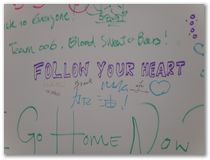 to Everyone!
Team 006, Blood Sweat & Beers!
FOLLOW YOUR HEART
加油!
Go Home Now